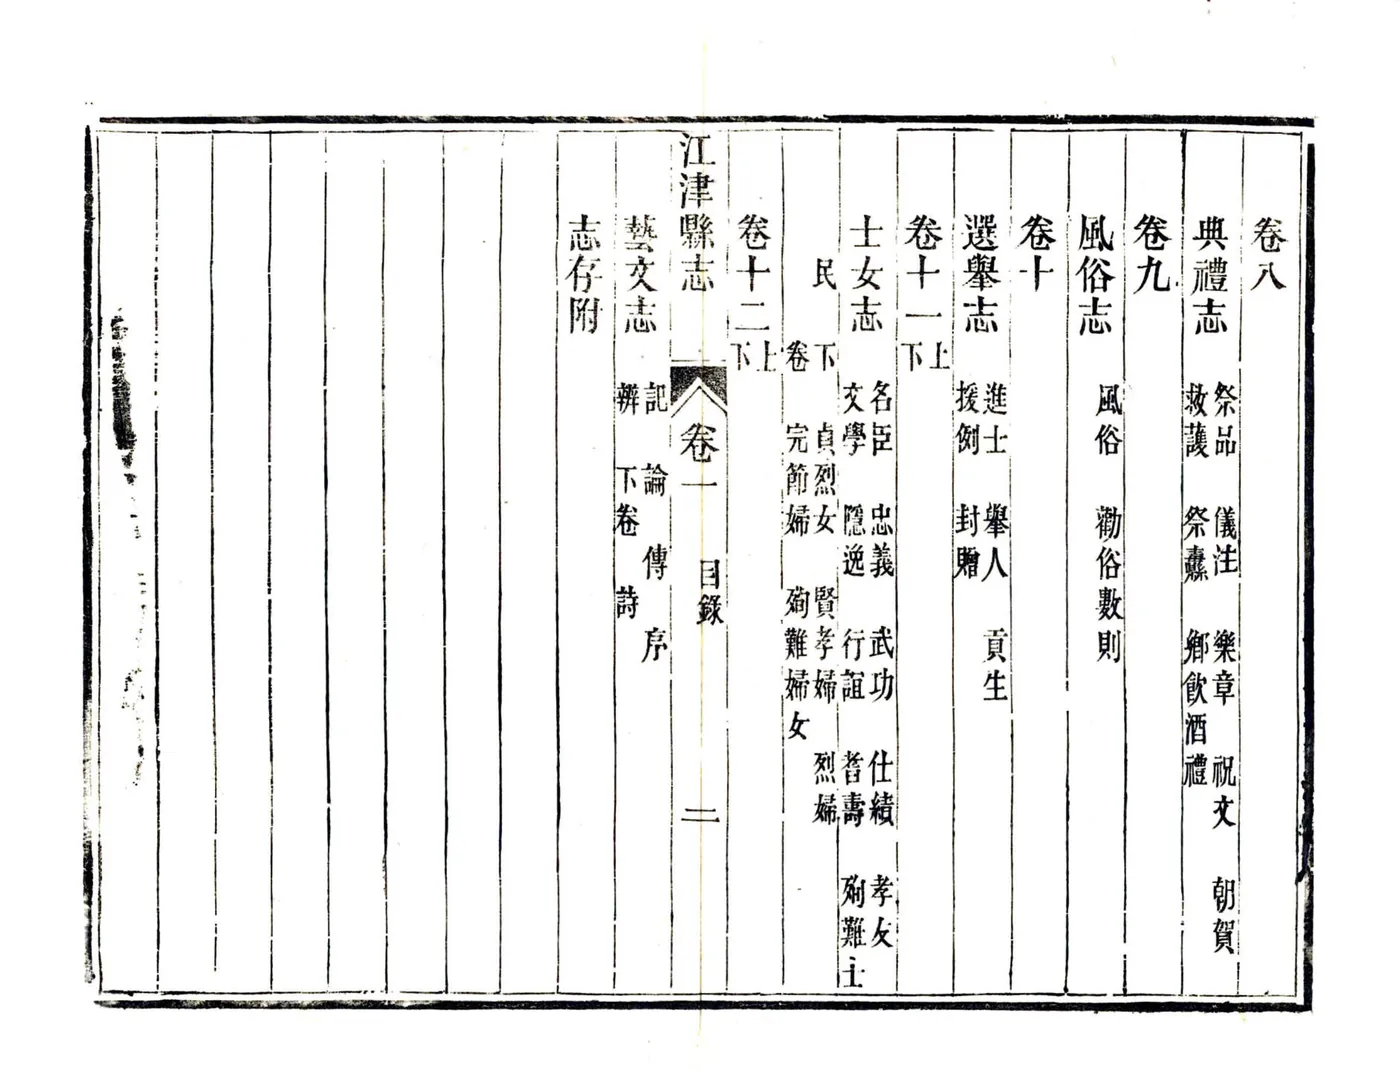 卷八
典禮志 祭品 儀注 樂章 祝文 朝賀
救護 祭纛 鄉飲酒禮
卷九
風俗志 風俗 勸俗數則
卷十
選舉志 進士 舉人 貢生
援例 封贈
卷十一上下
士女志 名臣 忠義 武功 仕績 孝友
文學 隱逸 行誼 耆壽 殉難士
民 下 貞烈女 賢孝婦 烈婦
卷 完節婦 殉難婦女
卷十二上下
江津縣志 卷一 目錄 二
藝文志 記 論 傳 序
辨 下卷 詩
志存附